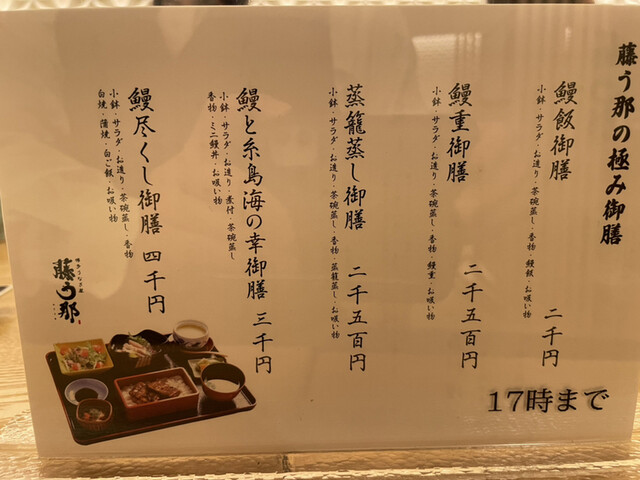 藤う那の極み御膳
鰻飯御膳 二千円
小鉢・サラダ・お造り・茶碗蒸し・香物・鰻飯・お吸い物
鰻重御膳 二千五百円
小鉢・サラダ・お造り・茶碗蒸し・香物・鰻重・お吸い物
蒸籠蒸し御膳 二千五百円
小鉢・サラダ・お造り・茶碗蒸し・香物・蒸籠蒸し・お吸い物
鰻と糸島海の幸御膳 三千円
小鉢・サラダ・お造り・煮付・茶碗蒸し
香物・ミニ鰻丼・お吸い物
鰻尽くし御膳 四千円
小鉢・サラダ・お造り・茶碗蒸し・香物
白焼・蒲焼・白ご飯・お吸い物
藤う那
17時まで